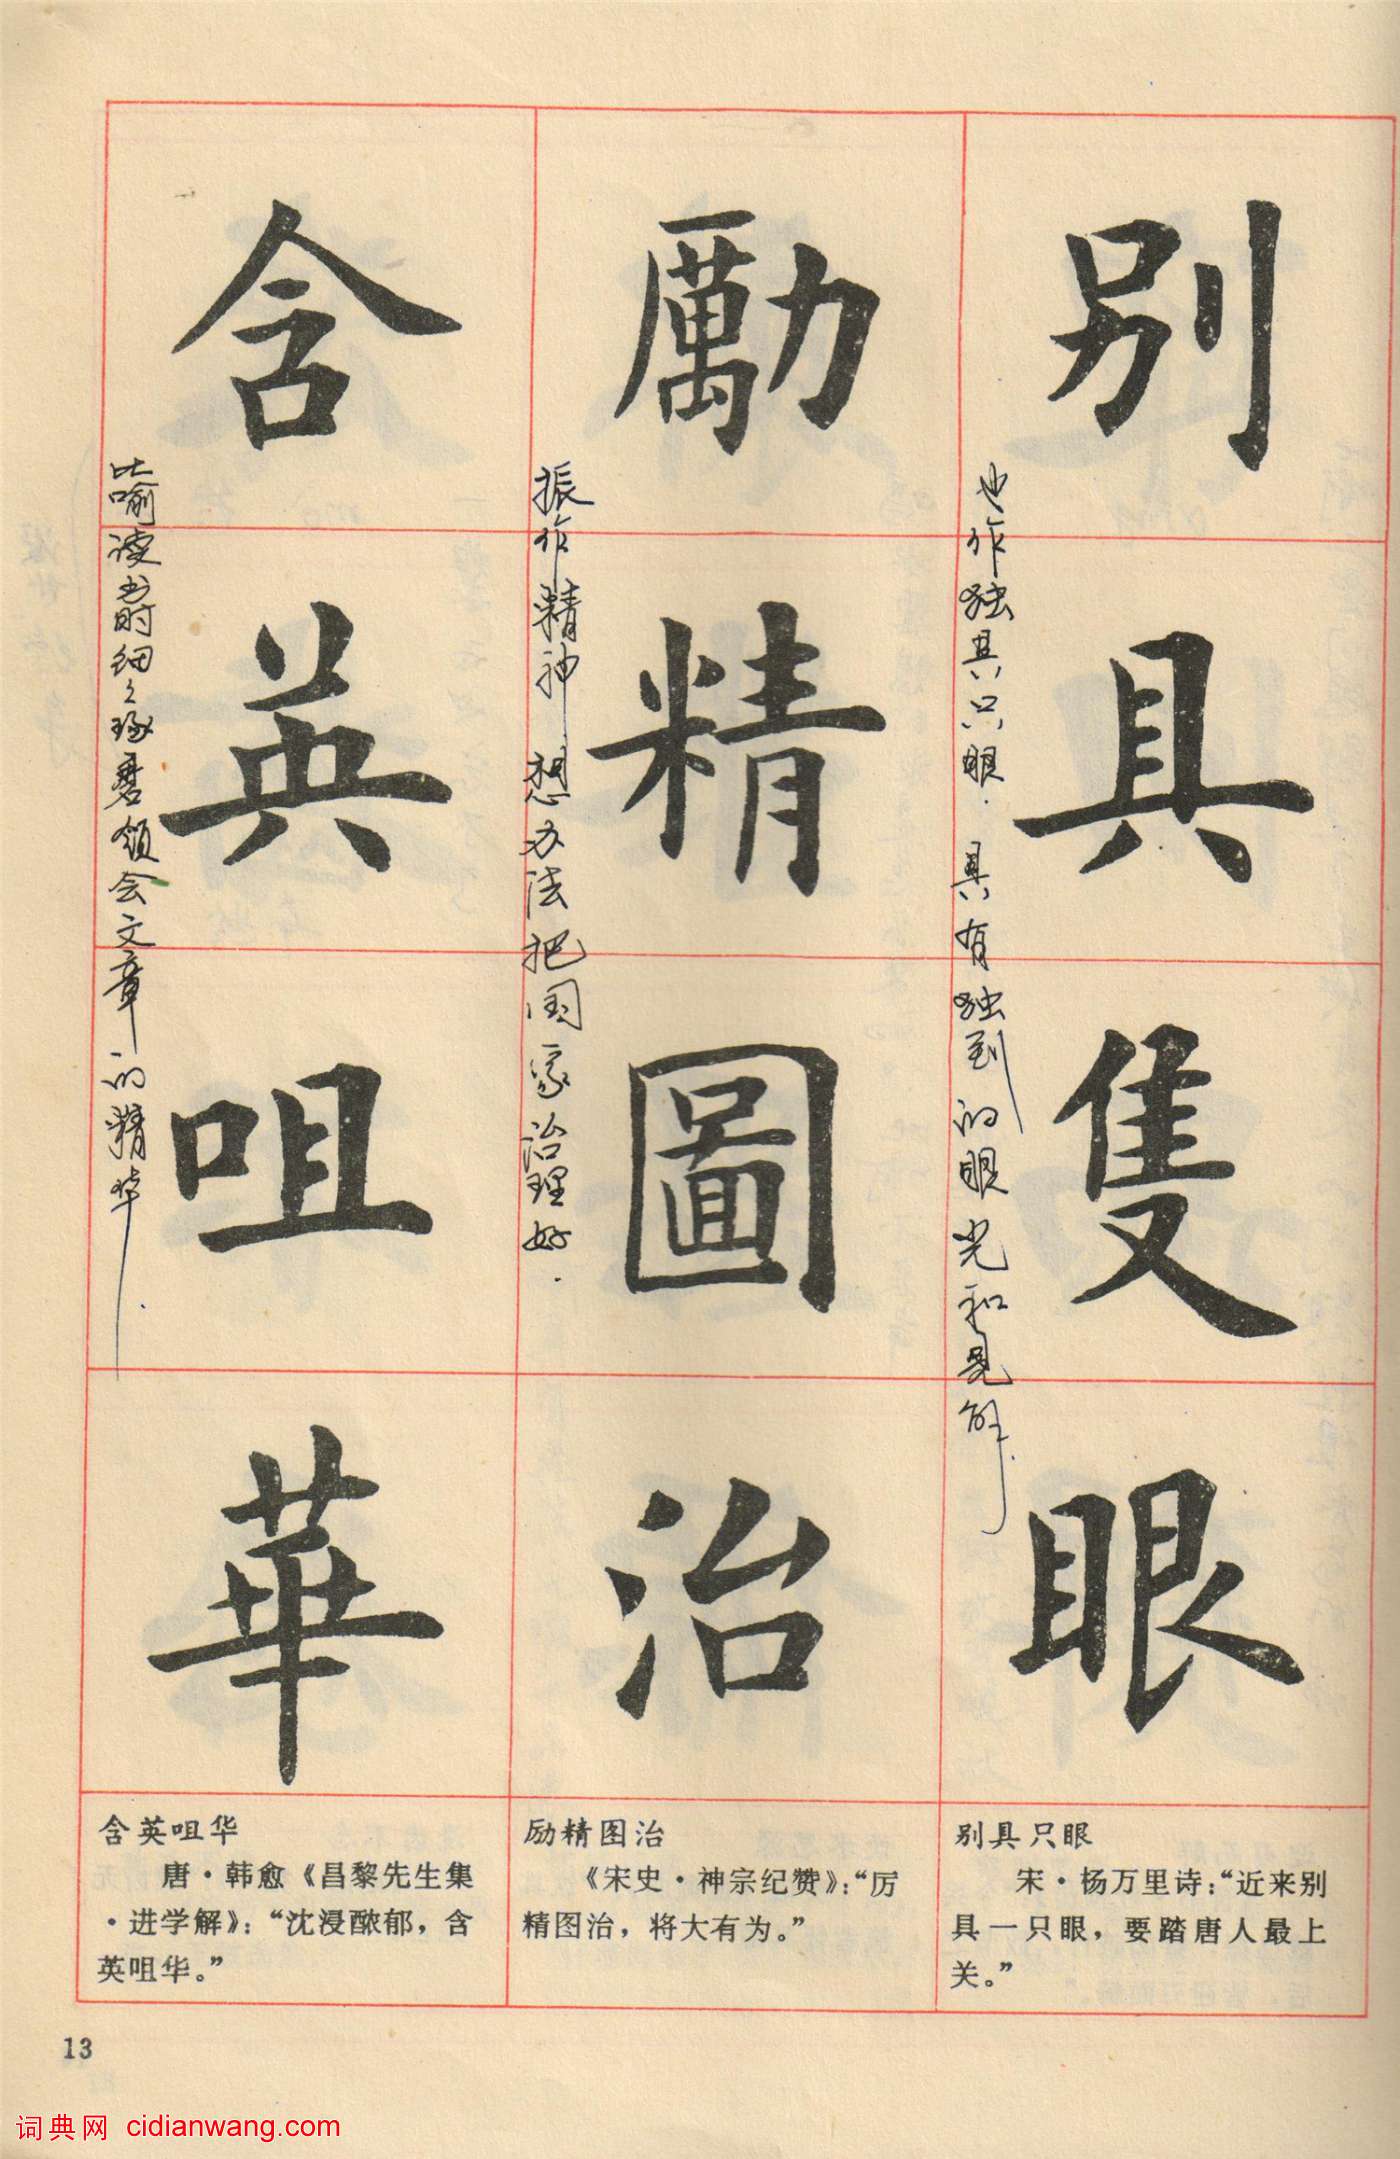 别具隻眼
也作独具只眼．具有独到的眼光和见解．
勵精圖治
振作精神 想办法把国家治理好．
含英咀華
比喻读书时细々琢磨领会文章的精华．
别具只眼
宋·杨万里诗：“近来别
具一只眼，要踏唐人最上
关。”
励精图治
《宋史·神宗纪赞》：“厉
精图治，将大有为。”
含英咀华
唐·韩愈《昌黎先生集
·进学解》：“沈浸醲郁，含
英咀华。”
13
词典网 cidianwang.com